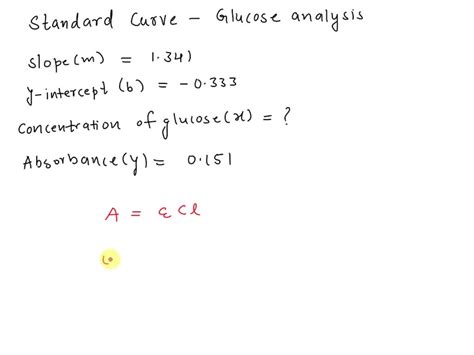 Standard Curve - Glucose analysis
slope(m) = 1.341
y-intercept (b) = -0.333
Concentration of glucose(x) = ?
Absorbance(y) = 0.151
A = ε C l